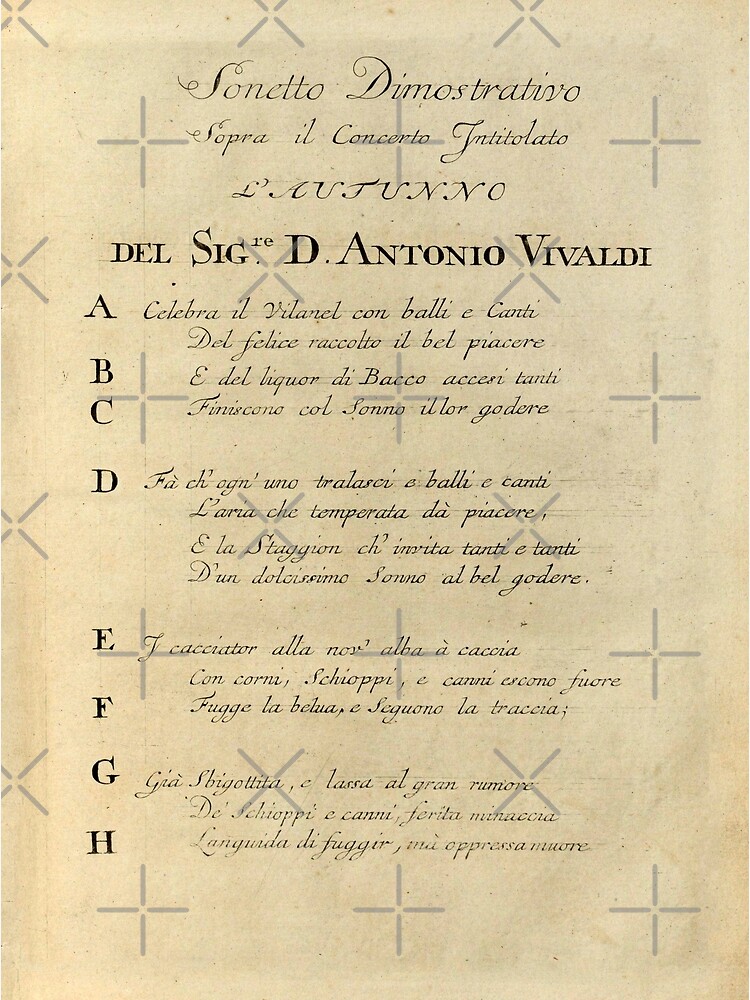 Sonetto Dimostrativo
Sopra il Concerto Intitolato
L'AUTUNNO
DEL SIG.re D. ANTONIO VIVALDI
A Celebra il Vilanel con balli e Canti
Del felice raccolto il bel piacere
B E del liquor di Bacco accesi tanti
C Finiscono col Sonno il lor godere
D Fà ch' ogn' uno tralasci e balli e canti
L'aria che temperata dà piacere,
E la Staggion ch' invita tanti e tanti
D'un dolcissimo Sonno al bel godere.
E I cacciator alla nov' alba à caccia
Con corni, Schioppi, e canni escono fuore
F Fugge la belua, e Seguono la traccia;
G Già Sbigottita, e lassa al gran rumore
De' Schioppi e canni, ferita minaccia
H Languida di fuggir, mà oppressa muore